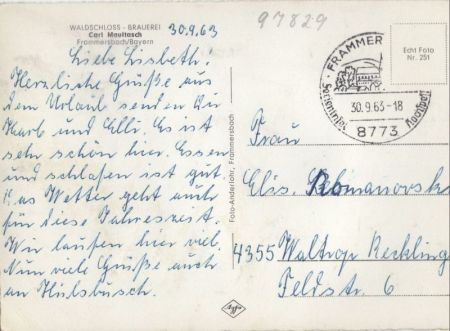 WALDSCHLOSS - BRAUEREI
Carl Maultasch
Frammersbach/Bayern
30.9.63
97829
Liebe Lisbeth!
Herzliche Grüße aus
dem Urlaub senden Dir
und Elli. Es ist
sehr schön hier. Essen
und schlafen ist gut
Das Wetter geht auch
für diese Jahreszeit.
Wir laufen hier viel.
Nun viele Grüße auch
an
Foto-Anderlohr, Frammersbach
Agfa
FRAMMER
30.9.63-18
8773
Echt Foto
Nr. 251
Frau
Elis. Romanovsk
4355 Waltrop Reckling
Feldstr. 6